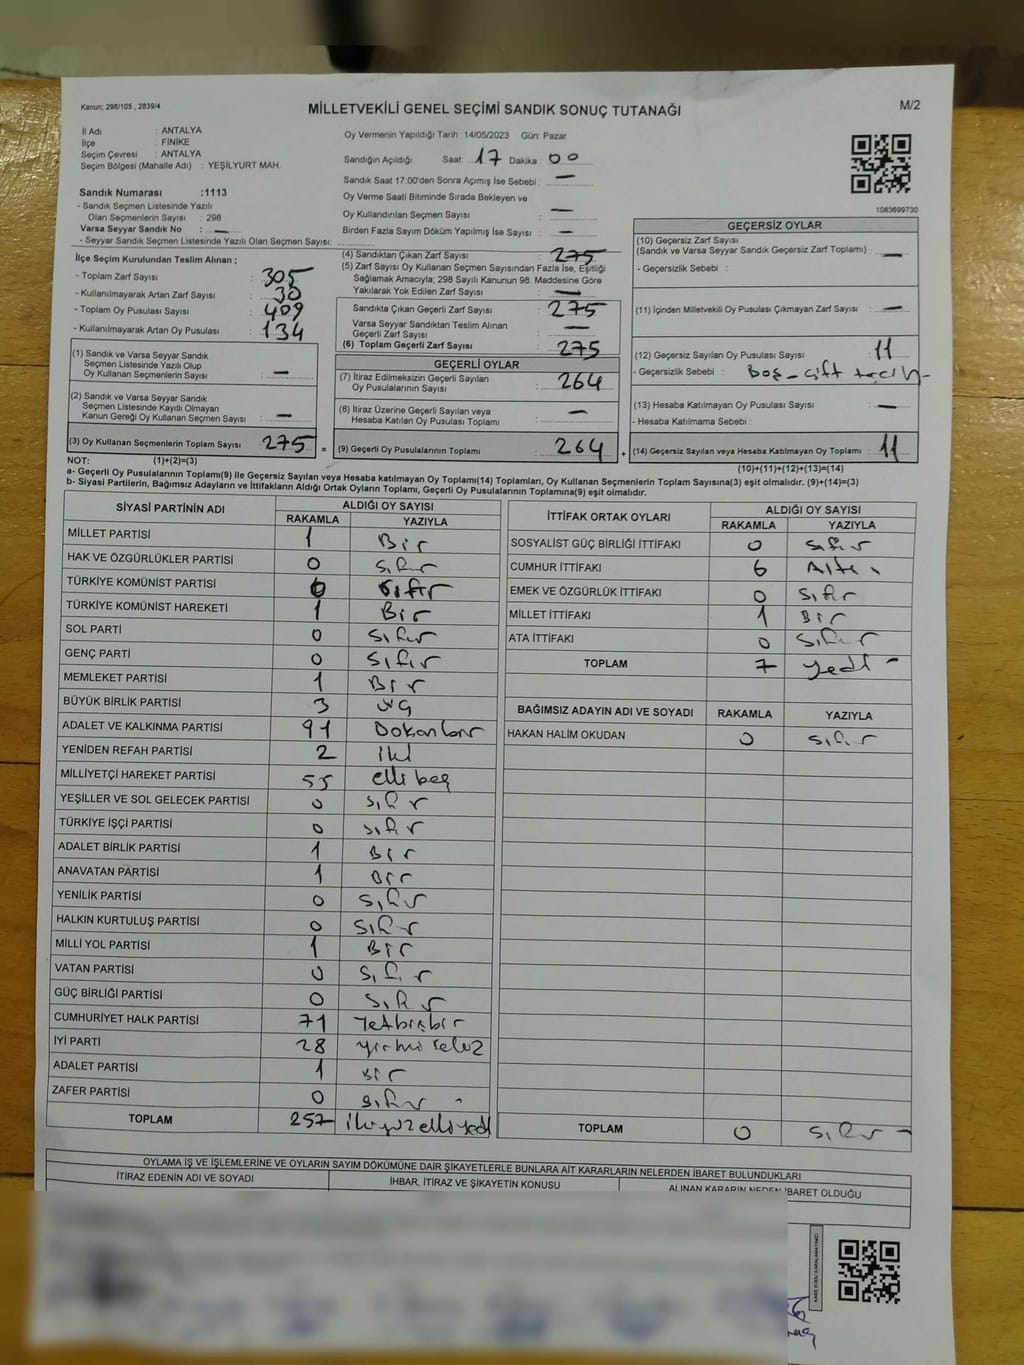 Kanun; 298/105 , 2839/4
MİLLETVEKİLİ GENEL SEÇİMİ SANDIK SONUÇ TUTANAĞI
M/2
İl Adı : ANTALYA
İlçe : FİNİKE
Seçim Çevresi : ANTALYA
Seçim Bölgesi (Mahalle Adı) : YEŞİLYURT MAH.
Sandık Numarası :1113
- Sandık Seçmen Listesinde Yazılı
Olan Seçmenlerin Sayısı : 298
Varsa Seyyar Sandık No : —
- Seyyar Sandık Seçmen Listesinde Yazılı Olan Seçmen Sayısı:
Oy Vermenin Yapıldığı Tarih : 14/05/2023 Gün: Pazar
Sandığın Açıldığı Saat: 17 Dakika : 00
Sandık Saat 17:00'den Sonra Açımış İse Sebebi : —
Oy Verme Saati Bitiminde Sırada Bekleyen ve
Oy Kullandırılan Seçmen Sayısı : —
Birden Fazla Sayım Döküm Yapılmış İse Sayısı : —
1083699730
İlçe Seçim Kurulundan Teslim Alınan ;
- Toplam Zarf Sayısı : 305
- Kullanılmayarak Artan Zarf Sayısı : 30
- Toplam Oy Pusulası : 409
- Kullanılmayarak Artan Oy Pusulası : 134
(1) Sandık ve Varsa Seyyar Sandık
Seçmen Listesinde Yazılı Olup
Oy Kullanan Seçmenlerin Sayısı : —
(2) Sandık ve Varsa Seyyar Sandık
Seçmen Listesinde Kayıtlı Olmayan
Kanun Gereği Oy Kullanan Seçmen Sayısı : —
(3) Oy Kullanan Seçmenlerin Toplam Sayısı : 275 =
(4) Sandıktan Çıkan Zarf Sayısı : 275
(5) Zarf Sayısı Oy Kullanan Seçmen Sayısından Fazla İse, Eşitliği
Sağlamak Amacıyla; 298 Sayılı Kanunun 98. Maddesine Göre
Yakılarak Yok Edilen Zarf Sayısı : —
Sandıkta Çıkan Geçerli Zarf Sayısı : 275
Varsa Seyyar Sandıktan Teslim Alınan
Geçerli Zarf Sayısı : —
(6) Toplam Geçerli Zarf Sayısı : 275
GEÇERLİ OYLAR
(7) İtiraz Edilmeksizin Geçerli Sayılan
Oy Pusulalarının Sayısı : 264
(8) İtiraz Üzerine Geçerli Sayılan veya
Hesaba Katılan Oy Pusulası Toplamı : —
(9) Geçerli Oy Pusulalarının Toplamı : 264 +
GEÇERSİZ OYLAR
(10) Geçersiz Zarf Sayısı
(Sandık ve Varsa Seyyar Sandık Geçersiz Zarf Toplamı) : —
- Geçersizlik Sebebi :
(11) İçinden Milletvekili Oy Pusulası Çıkmayan Zarf Sayısı : —
(12) Geçersiz Sayılan Oy Pusulası Sayısı : 11
- Geçersizlik Sebebi : Boş - çift tercih -
(13) Hesaba Katılmayan Oy Pusulası Sayısı : —
- Hesaba Katılmama Sebebi :
(14) Geçersiz Sayılan veya Hesaba Katılmayan Oy Toplamı : 11
(10)+(11)+(12)+(13)=(14)
NOT: (1)+(2)=(3)
a- Geçerli Oy Pusulalarının Toplamı(9) ile Geçersiz Sayılan veya Hesaba katılmayan Oy Toplamı(14) Toplamları, Oy Kullanan Seçmenlerin Toplam Sayısına(3) eşit olmalıdır. (9)+(14)=(3)
b- Siyasi Partilerin, Bağımsız Adayların ve İttifakların Aldığı Ortak Oyların Toplamı, Geçerli Oy Pusulalarının Toplamına(9) eşit olmalıdır.
SİYASİ PARTİNİN ADI ALDIĞI OY SAYISI
RAKAMLA YAZIYLA
MİLLET PARTİSİ 1 Bir
HAK VE ÖZGÜRLÜKLER PARTİSİ 0 sıfır
TÜRKİYE KOMÜNİST PARTİSİ 0 sıfır
TÜRKİYE KOMÜNİST HAREKETİ 1 Bir
SOL PARTİ 0 sıfır
GENÇ PARTİ 0 sıfır
MEMLEKET PARTİSİ 1 Bir
BÜYÜK BİRLİK PARTİSİ 3 üç
ADALET VE KALKINMA PARTİSİ 91 Doksanbir
YENİDEN REFAH PARTİSİ 2 iki
MİLLİYETÇİ HAREKET PARTİSİ 55 elli beş
YEŞİLLER VE SOL GELECEK PARTİSİ 0 sıfır
TÜRKİYE İŞÇİ PARTİSİ 0 sıfır
ADALET BİRLİK PARTİSİ 1 Bir
ANAVATAN PARTİSİ 1 Bir
YENİLİK PARTİSİ 0 sıfır
HALKIN KURTULUŞ PARTİSİ 0 sıfır
MİLLİ YOL PARTİSİ 1 Bir
VATAN PARTİSİ 0 sıfır
GÜÇ BİRLİĞİ PARTİSİ 0 sıfır
CUMHURİYET HALK PARTİSİ 71 Yetmişbir
İYİ PARTİ 28 yirmi sekiz
ADALET PARTİSİ 1 Bir
ZAFER PARTİSİ 0 sıfır -
TOPLAM 257 ikiyüzelliyedi
İTTİFAK ORTAK OYLARI ALDIĞI OY SAYISI
RAKAMLA YAZIYLA
SOSYALİST GÜÇ BİRLİĞİ İTTİFAKI 0 sıfır
CUMHUR İTTİFAKI 6 Altı
EMEK VE ÖZGÜRLÜK İTTİFAKI 0 sıfır
MİLLET İTTİFAKI 1 Bir
ATA İTTİFAKI 0 sıfır
TOPLAM 7 yedi -
BAĞIMSIZ ADAYIN ADI VE SOYADI RAKAMLA YAZIYLA
HAKAN HALİM OKUDAN 0 sıfır
TOPLAM 0 sıfır -
OYLAMA İŞ VE İŞLEMLERİNE VE OYLARIN SAYIM DÖKÜMÜNE DAİR ŞİKAYETLERLE BUNLARA AİT KARARLARIN NELERDEN İBARET BULUNDUKLARI
İTİRAZ EDENİN ADI VE SOYADI İHBAR, İTİRAZ VE ŞİKAYETİN KONUSU ALINAN KARARIN NEDEN İBARET OLDUĞU